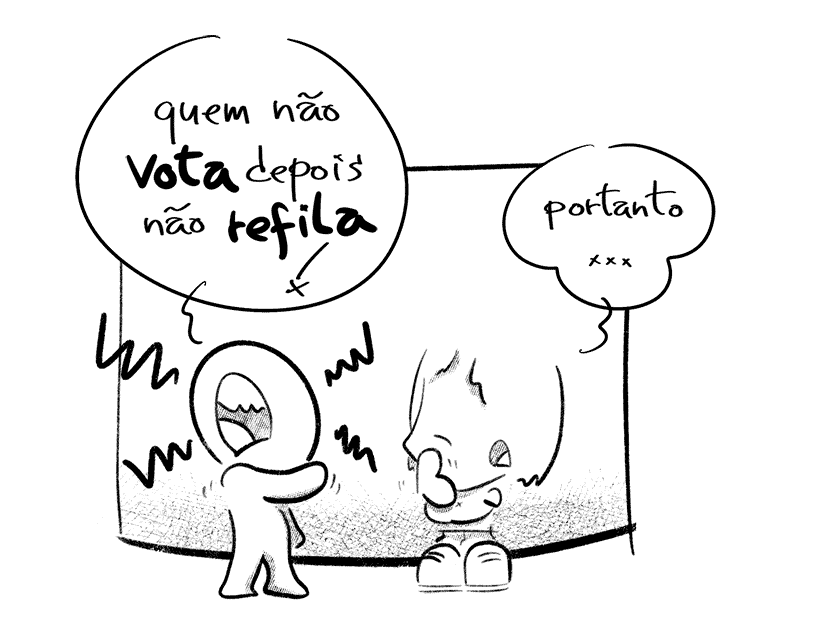 quem não
vota depois
não refila
x
portanto
xxx